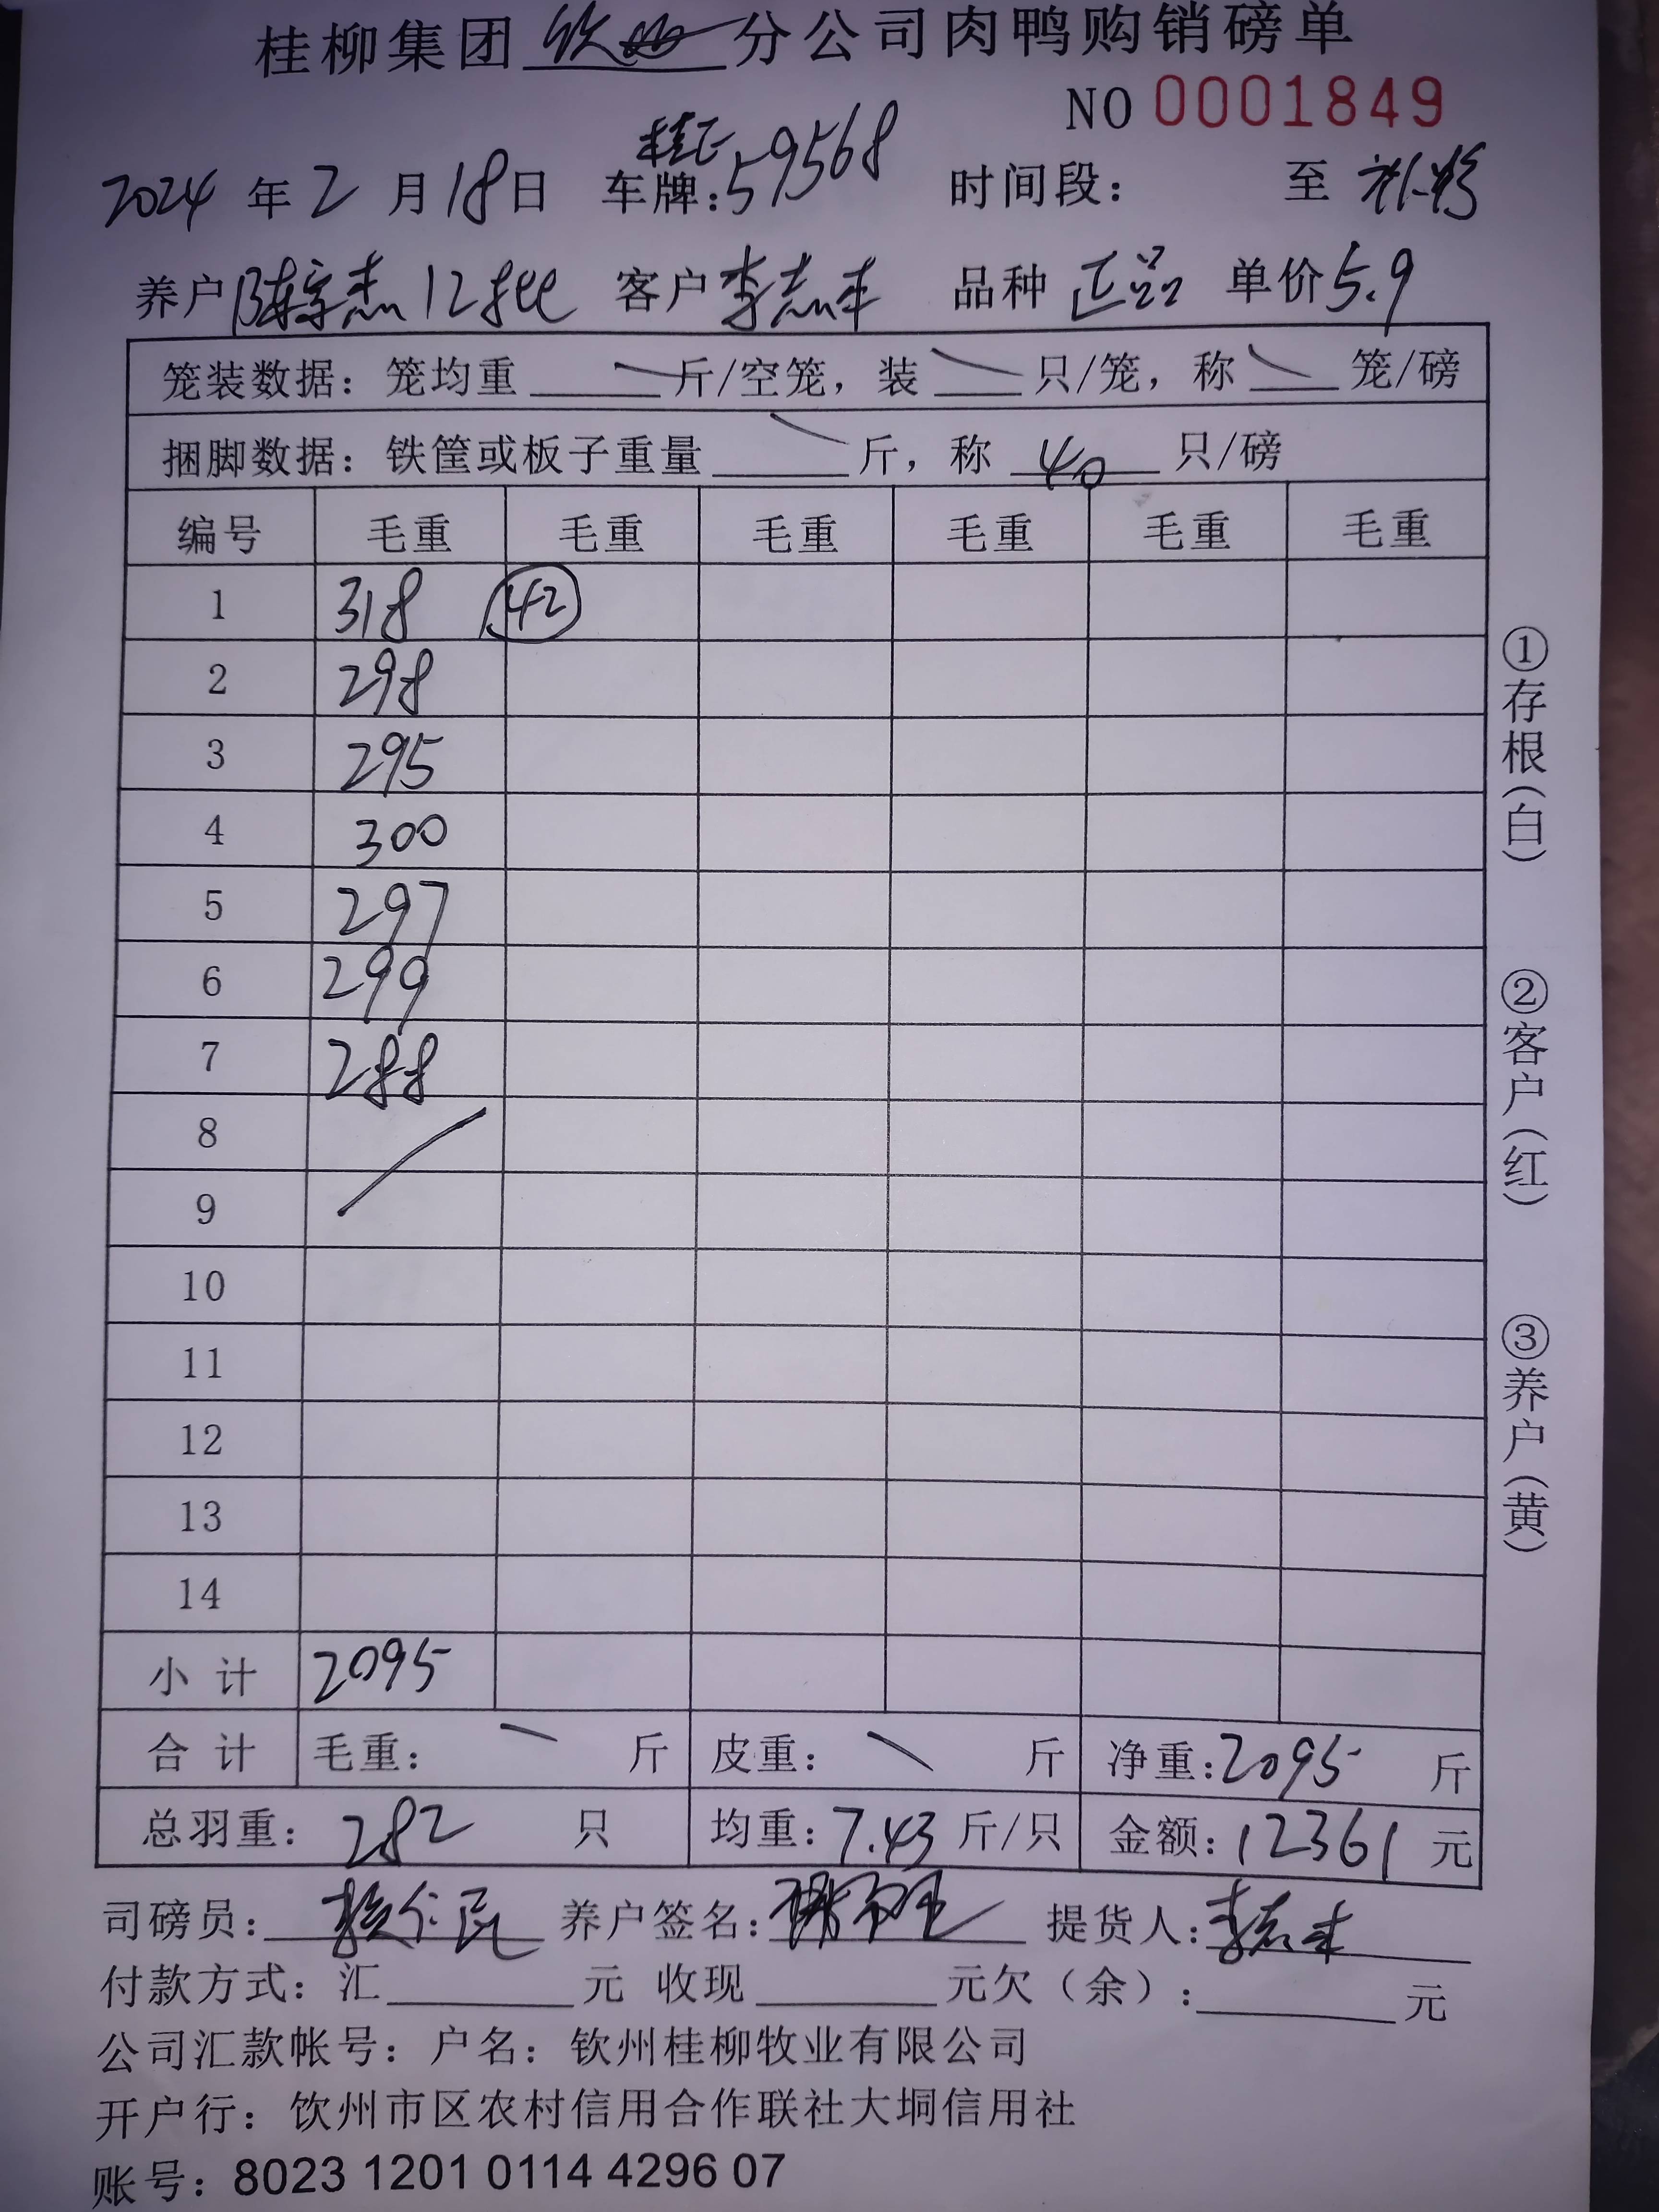 桂柳集团钦州分公司肉鸭购销磅单
NO 0001849
2024年2月18日 车牌:桂E59568 时间段: 至
养户 陈宗杰12批 客户 李志丰 品种 正品 单价5.9
笼装数据: 笼均重 斤/空笼, 装 只/笼, 称 笼/磅
捆脚数据: 铁筐或板子重量 斤, 称 40 只/磅
编号 毛重 毛重 毛重 毛重 毛重 毛重
1 318 42
2 298
3 295
4 300
5 297
6 299
7 288
8
9
10
11
12
13
14
小计 2095
合计 毛重: 斤 皮重: 斤 净重:2095 斤
总羽重: 282 只 均重:7.43斤/只 金额:12361元
司磅员: 养户签名: 提货人:李志丰
付款方式: 汇 元 收现 元欠(余): 元
公司汇款帐号: 户名: 钦州桂柳牧业有限公司
开户行: 钦州市区农村信用合作联社大垌信用社
账号: 8023 1201 0114 4296 07
①存根(白)
②客户(红)
③养户(黄)